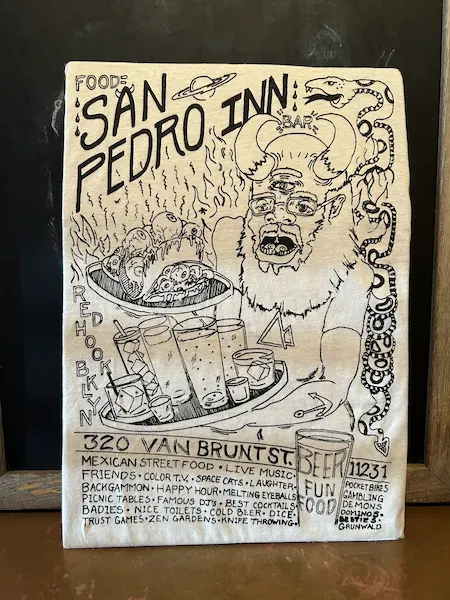 FOOD
SAN
PEDRO INN
BAR
RED HOOK BKLYN
320 VAN BRUNT ST.
MEXICAN STREET FOOD • LIVE MUSIC
FRIENDS • COLOR T.V. • SPACE CATS • LAUGHTER
BACKGAMMON • HAPPY HOUR • MELTING EYEBALLS
PICNIC TABLES • FAMOUS DJ'S • BEST COCKTAILS
BADIES • NICE TOILETS • COLD BEER • DICE
TRUST GAMES • ZEN GARDENS • KNIFE THROWING.
BEER
FUN
FOOD
11231
POCKET BIKES
GAMBLING
DEMONS
DOMINOS •
BESTIES •
GRUNWALD